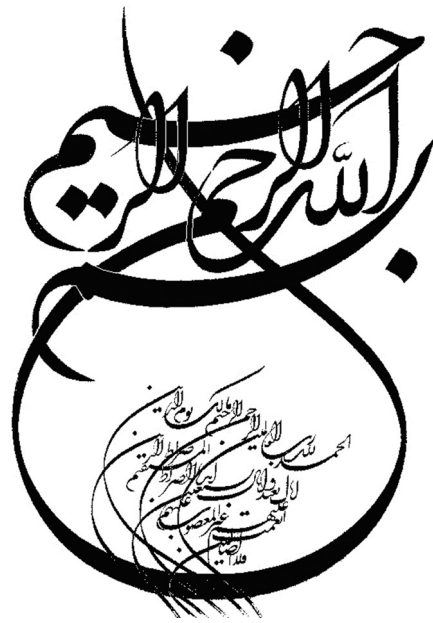 بسم الله الرحمن الرحيم
الحمد لله رب العالمين الرحمن الرحيم مالك يوم الدين
إياك نعبد وإياك نستعين اهدنا الصراط المستقيم
صراط الذين أنعمت عليهم غير المغضوب عليهم
ولا الضالين